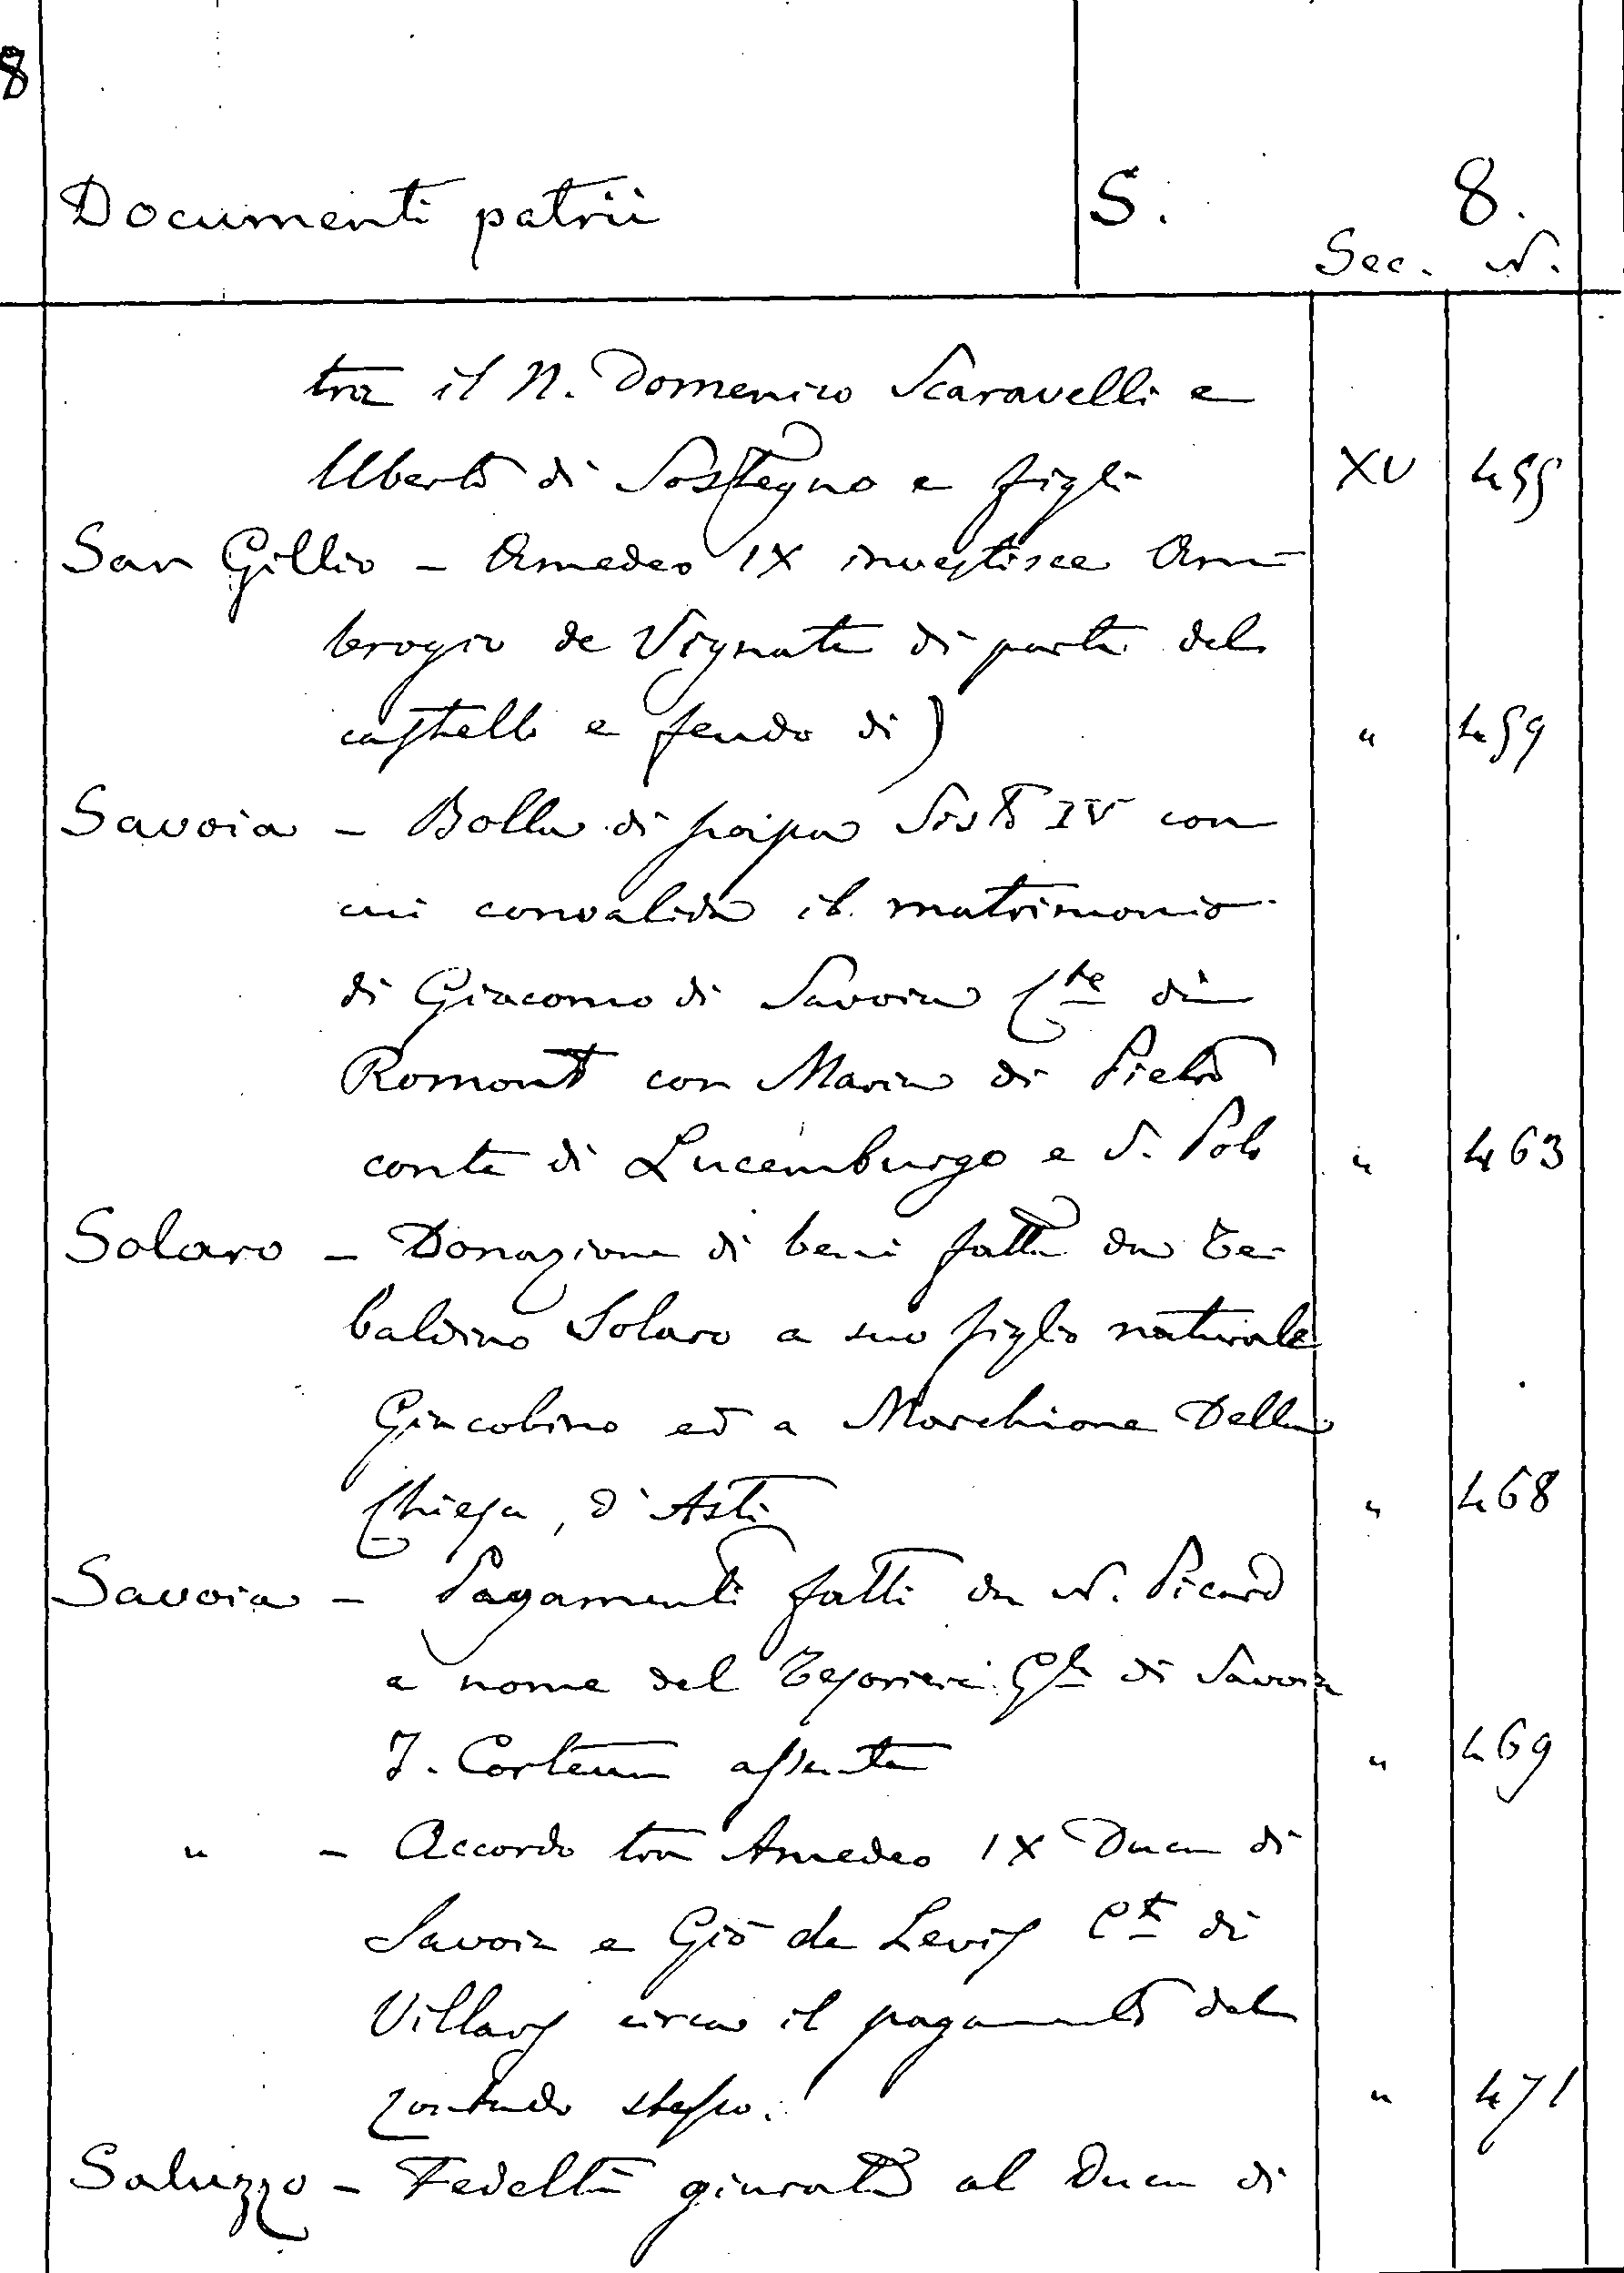 8
Documenti patrii S. 8.
Sec. N.
tra il N. Domenico Scaravelli e
Uberto di Sostegno e figli XV 455
San Gillio - Amedeo IX investisce Am-
brogio de Vignate di parte del
castello e feudo di) " 459
Savoia - Bolla di papa Sisto IV con
cui convalida il matrimonio
di Giacomo di Savoia Cte di
Romont con Maria di Pietro
conte di Lucemburgo e S. Polo " 463
Solaro - Donazione di beni fatta da Te-
baldino Solaro a suo figlio naturale
Giacobino ed a Marchione Della
Chiesa, d'Asti " 468
Savoia - Pagamenti fatti da N. Picard
a nome del Tesoriere Gle di Savoia
J. assente " 469
" - Accordo tra Amedeo IX Duca di
Savoia e Gio de Levis Cte di
Villars circa il pagamento del
contado stesso. " 471
Saluzzo - Fedeltà giurata al Duca di